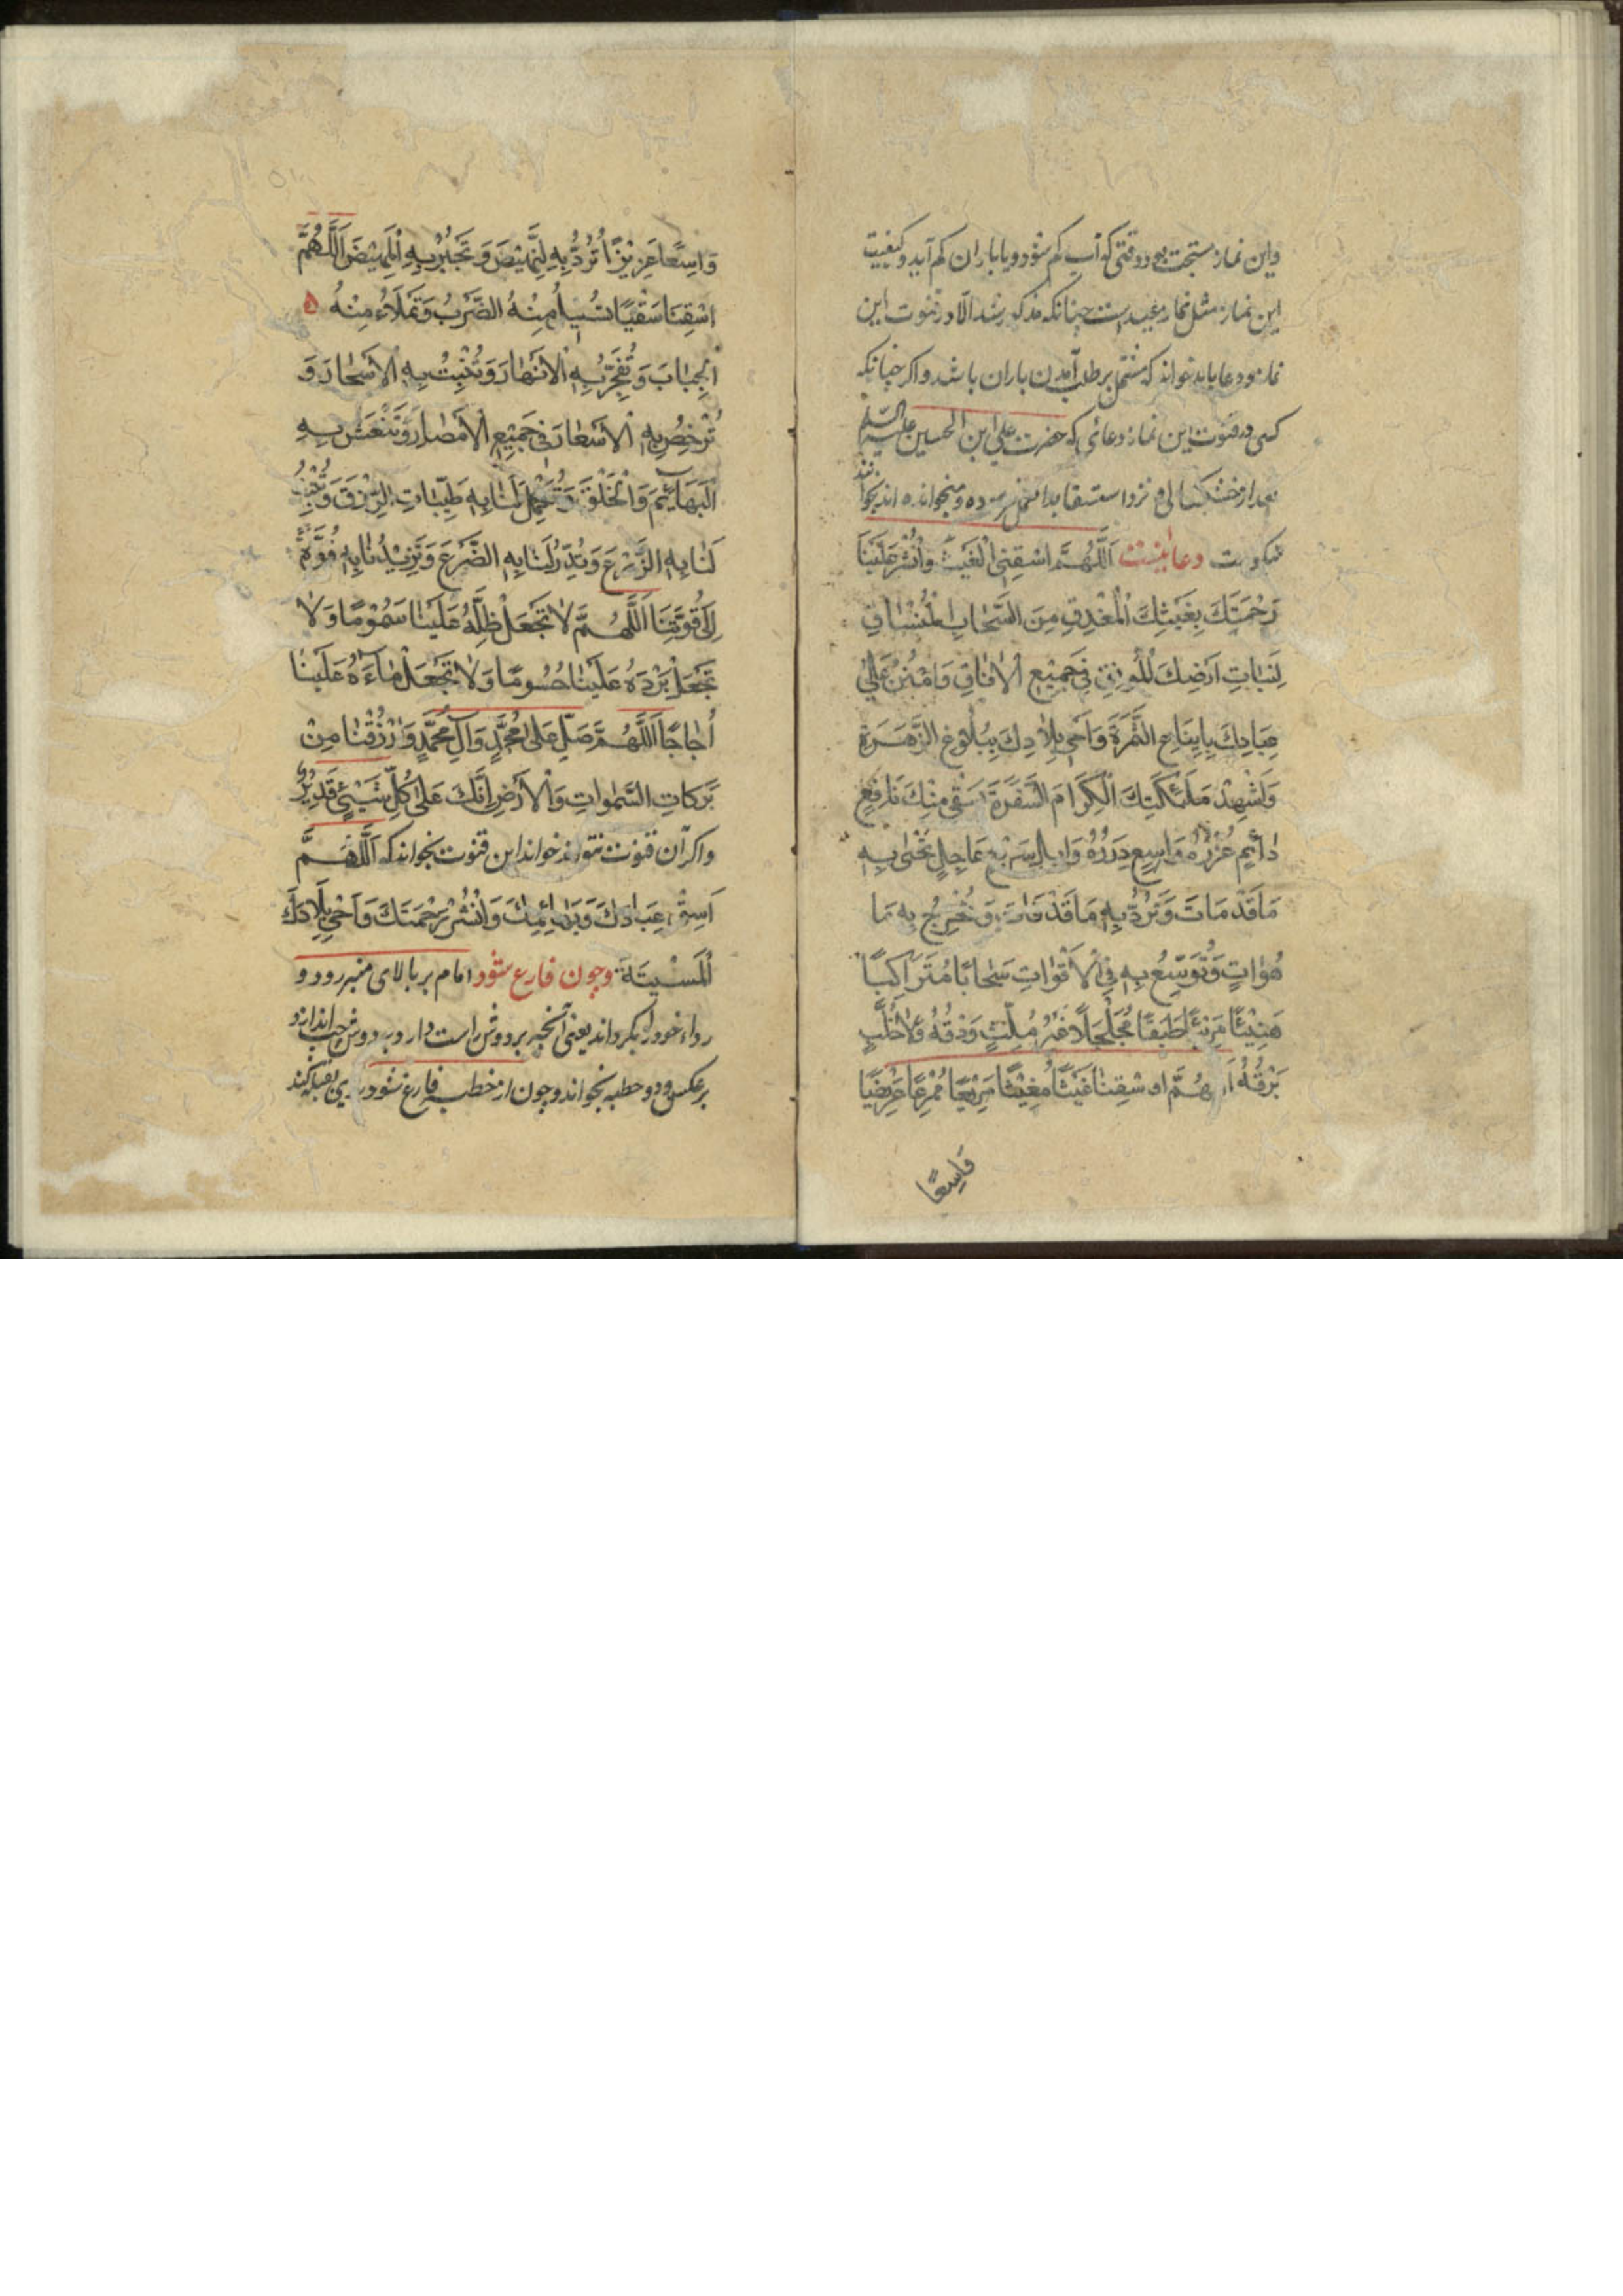 واین نماز مستحبست در وقتی که آب کم شود و یا باران کم آید و کیفیت
این نماز مثل نماز عیدست چنانکه مذکور شد الّا در قنوت این
نماز دو دعا باید خواند که مشتمل بر طلب آمدن باران باشد و اکر چنانکه
کسی در قنوت این نماز دعائی که حضرت علی ابن الحسین علیه السلم
بعد از خشکسالی و نزد استسقا بدان میخوانده اند بخوانند
دعا اینست اَللّٰهُمَّ اسْقِنِی الْغَیْثَ وَانْشُرْ عَلَیْنَا
رَحْمَتَكَ بِغَیْثِكَ الْمُغْدِقِ مِنَ السَّحَابِ الْمُنْسَاقِ
لِنَبَاتِ اَرْضِكَ الْمُونِقِ فِی جَمِیْعِ الْاٰفَاقِ وَامْنُنْ عَلٰی
عِبَادِكَ بِاِینَاعِ الثَّمَرَةِ وَاَحْیِ بِلَادِكَ بِبُلُوْغِ الزَّهَرَةِ
وَاَشْهِدْ مَلٰئِکَتَكَ الْکِرَامَ السَّفَرَةَ بِسَقْیٍ مِنْكَ نَافِعٍ
دَائِمٍ غُزْرُهُ وَاسِعٍ دِرَرُهُ وَابِلٍ سَرِیْعٍ عَاجِلٍ تُحْیٖی بِهِ
مَا قَدْ مَاتَ وَتَرُدُّ بِهِ مَا قَدْ فَاتَ وَتُخْرِجُ بِهِ مَا
هُوَاٰتٍ وَتُوَسِّعُ بِهِ فِی الْاَقْوَاتِ سَحَابًا مُتَرَاکِبًا
هَنِیْئًا مَرِیْئًا طَبَقًا مُجَلْجَلًا غَیْرَ مُلِثٍّ وَدْقُهُ وَلَا خُلَّبٍ
بَرْقُهُ اَللّٰهُمَّ اسْقِنَا غَیْثًا مُغِیْثًا مَرِیْعًا مُمْرِعًا عَرِیْضًا
وَاسِعًا
وَاسِعًا عَزِیْزًا تَرُدُّ بِهِ النَّهِیْضَ وَتَجْبُرُ بِهِ الْمَهِیْضَ اَللّٰهُمَّ
اسْقِنَا سَقْیًا تُسِیْلُ مِنْهُ الضَّرَبُ وَتَمْلَاءُ مِنْهُ
الْجِبَابَ وَتُفَجِّرُ بِهِ الْاَنْهَارَ وَتُنْبِتُ بِهِ الْاَشْجَارَ وَ
تُرْخِصُ بِهِ الْاَسْعَارَ فِی جَمِیْعِ الْاَمْصَارِ وَتَنْعَشُ بِهِ
الْبَهَائِمَ وَالْخَلْقَ وَتُکْمِلُ لَنَا بِهِ طَیِّبَاتِ الرِّزْقَ وَتُنْبِتُ
لَنَا بِهِ الزَّرْعَ وَتُدِّرُ لَنَا بِهِ الضَّرْعَ وَتَزِیْدُنَا بِهِ قُوَّةً
اِلٰی قُوَّتِنَا اَللّٰهُمَّ لَا تَجْعَلْ ظِلَّهُ عَلَیْنَا سَمُوْمًا وَلَا
تَجْعَلْ بَرْدَهُ عَلَیْنَا حُسُومًا وَلَا تَجْعَلْ مَاءَهُ عَلَیْنَا
اُجَاجًا اَللّٰهُمَّ صَلِّ عَلٰی مُحَمَّدٍ وَاٰلِ مُحَمَّدٍ وَارْزُقْنَا مِنْ
بَرَکَاتِ السَّمٰوَاتِ وَالْاَرْضِ اِنَّكَ عَلٰی کُلِّ شَیْئٍ قَدِیْرٌ
واکر آن قنوت نتواند خواند این قنوت بخواند که اَللّٰهُمَّ
اَسِقْ عِبَادَكَ وَبَهَائِمَكَ وَانْشُرْ رَحْمَتَكَ وَاَحْیِ بِلَادَكَ
الْمَیْتَةَ وچون فارغ شود امام بر بالای منبر رود و
رداء خود را بکرداند یعنی آنچه بر دوش راست دارد بر دوش چپ اندازد و
برعکس و دو خطبه بخواند و چون از خطبه فارغ شود روی بقبله کند